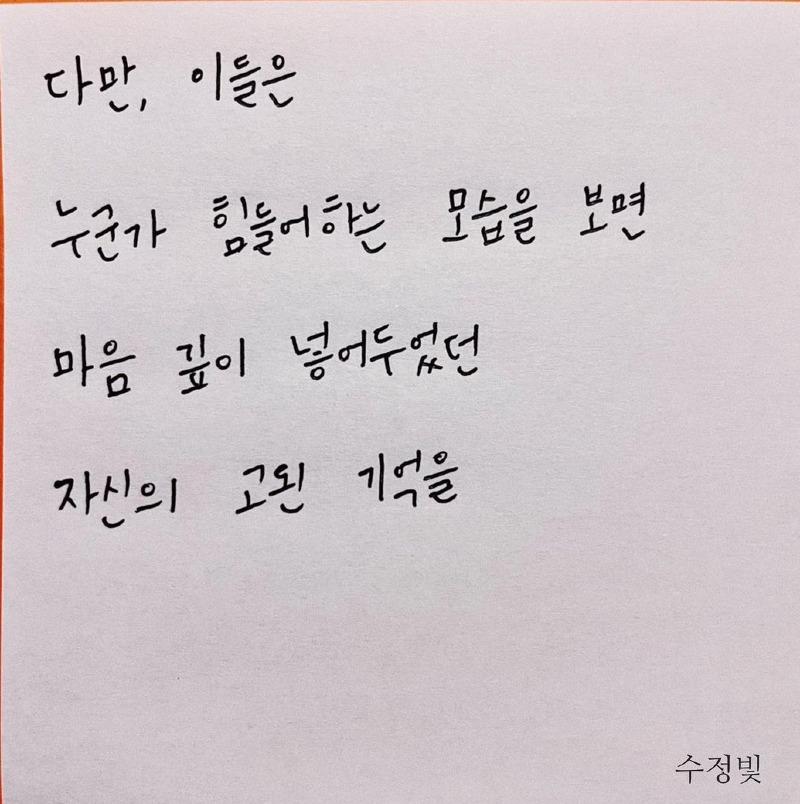 다만, 이들은
누군가 힘들어하는 모습을 보면
마음 깊이 넣어두었던
자신의 고된 기억을
수정빛